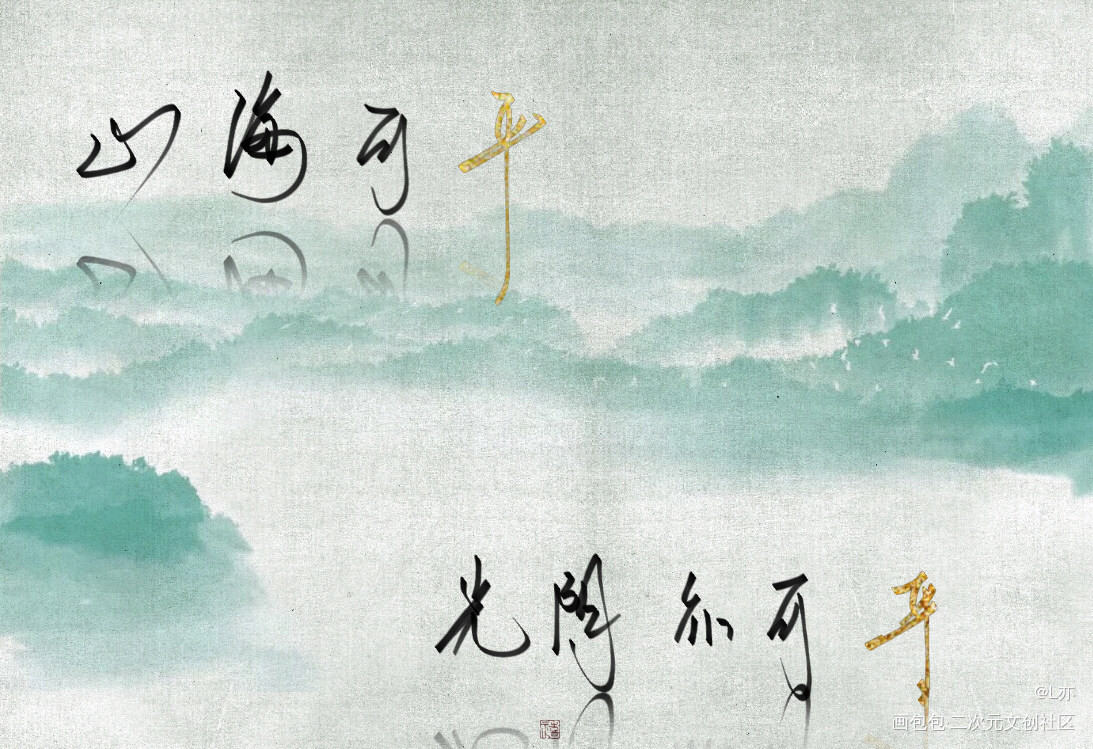 山海可平
光阴亦可平
@L亦
画包包·二次元文创社区